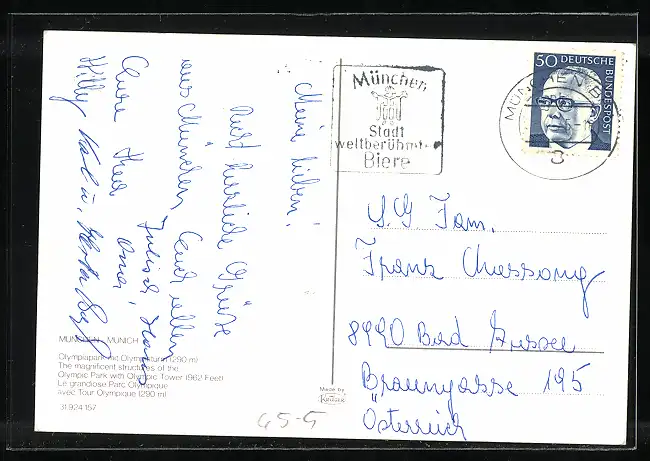 Meine Lieben!
Recht herzliche Grüße
aus München Euch allen
Julisch, Hans
Eure Hea Oma,
Hilly Karl u. Herta
MÜNCHEN - MUNICH
Olympiapark mit Olympiaturm (290 m)
The magnificent structures of the
Olympic Park with Olympic Tower (962 Feet)
Le grandiose Parc Olympique
avec Tour Olympique (290 m)
31.924 157
Made by
Krüger
München
Stadt
weltberühmter
Biere
MÜNCHEN
50 DEUTSCHE
BUNDESPOST
S.G Fam.
Franz Massong
8990 Bad Aussee
Braungasse 195
Österreich
45-5